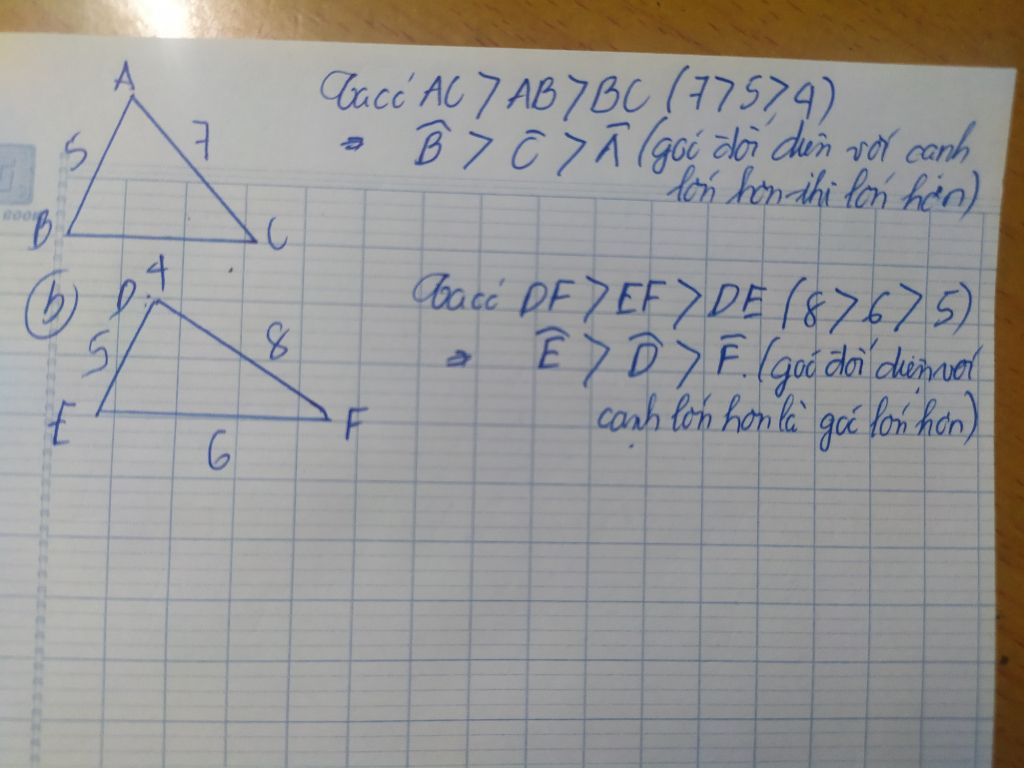 A
5
7
B
C
4
Ta có AC > AB > BC (7 > 5 > 4)
⇒ B̂ > Ĉ > Â (góc đối diện với cạnh
lớn hơn thì lớn hơn)
b
D
5
8
E
F
6
Ta có DF > EF > DE (8 > 6 > 5)
⇒ Ê > D̂ > F̂. (góc đối diện với
cạnh lớn hơn là góc lớn hơn)